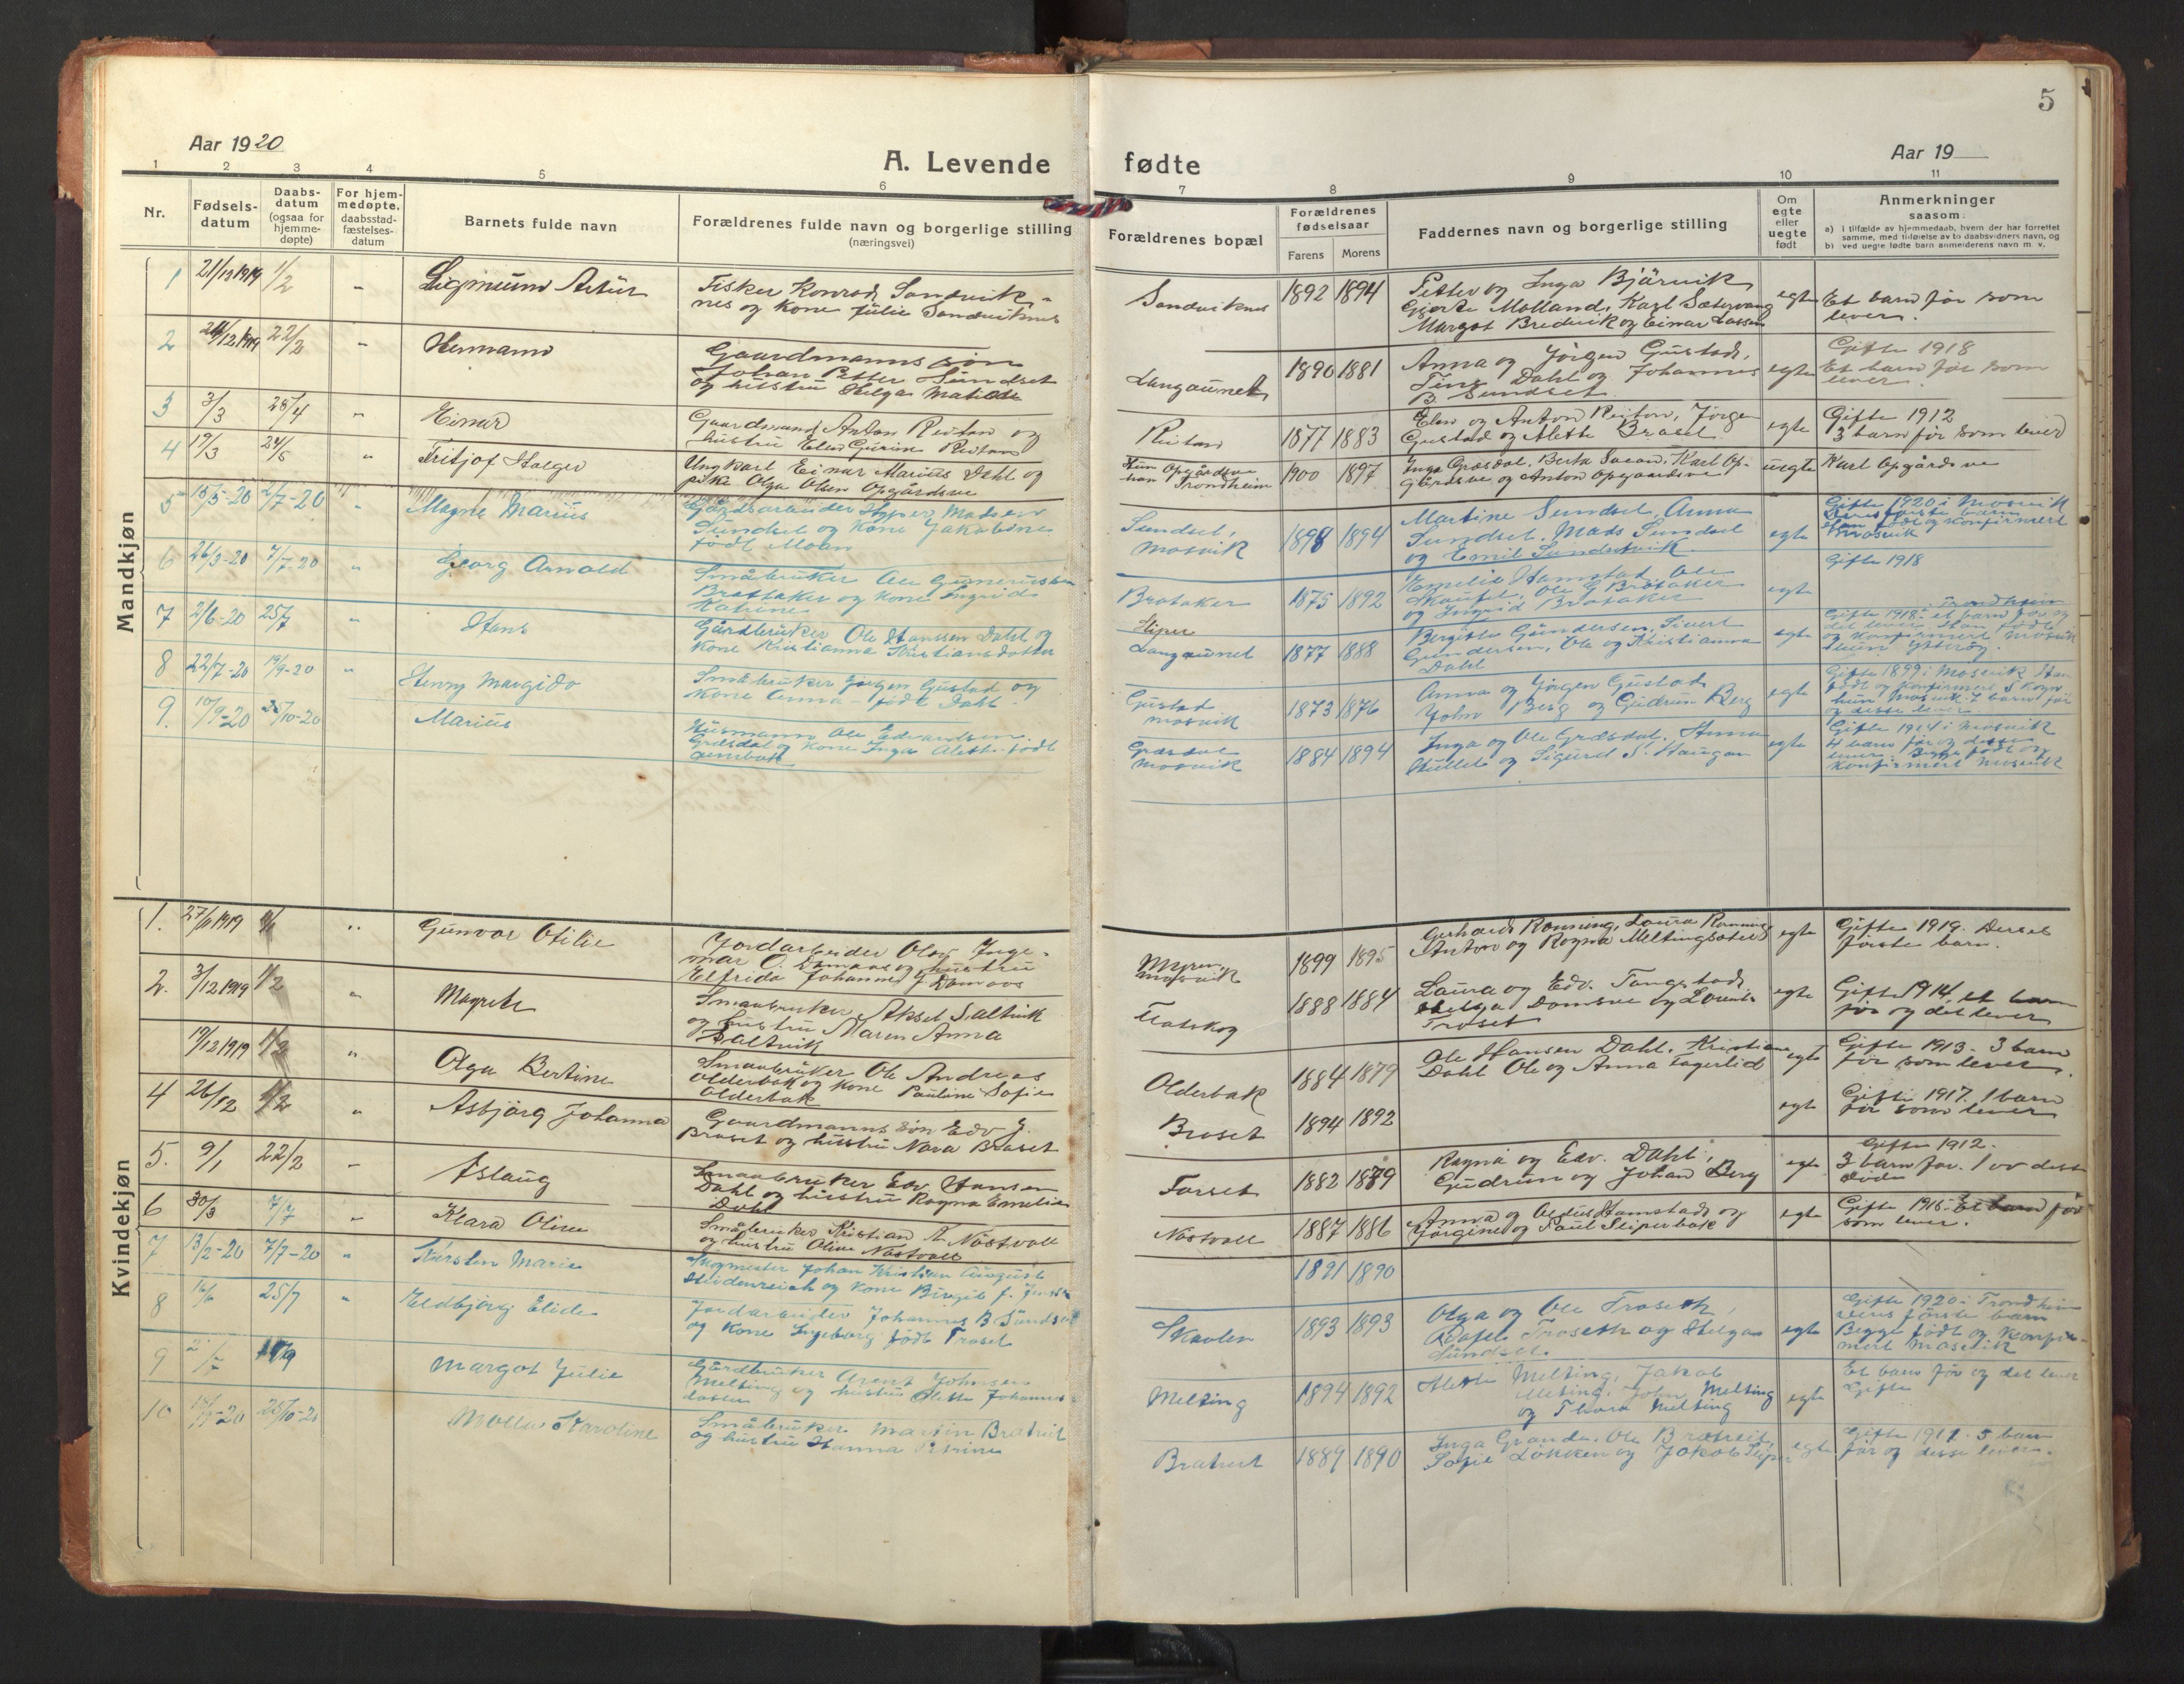 5
Aar 1920
A. Levende fødte
Aar 19
1 2 3 4 5 6 7 8 9 10 11
Nr.
Fødsels-
datum
Daabs-
datum
(ogsaa for
hjemme-
døpte)
For hjem-
medøpte.
daabsstad-
fæstelses-
datum
Barnets fulde navn
Forældrenes fulde navn og borgerlige stilling
(næringsvei)
Forældrenes bopæl
Forældrenes
fødselsaar
Farens Morens
Faddernes navn og borgerlige stilling
Om
egte
eller
uegte
født
Anmerkninger
saasom:
a) i tilfælde av hjemmedaab, hvem der har forrettet
samme, med tilføielse av to daabsvidners navn, og
b) ved uegte fødte barn anmelderens navn m. v.
Mandkjøn
1 21/12 1919 1/2 " Sigmund Artur
Fisker Konrad Sandvik-
nes og Kone Julie Sandviknes
Sandviknes 1892 1894
Petter og Inga Bjårvik
Gjerte Molland, Karl Sætervang
Margot Bredvik og Einar Lassen
egte
Et barn før som
lever.
2 24/12 1919 22/2 " Hermann
Gaardmanns søn
Johan Petter Sundset
og hustru Helga Matilde
Langaunet 1890 1881
Anna og Jørgen Gustad,
Tina Dahl og Johannes
B Sundset
egte
Gifte 1918
Et barn før som
lever.
3 3/3 25/4 " Einar
Gaardmand Anton Reitan og
hustru Elen Gurine Reitan
Reitan 1877 1883
Elen og Anton Reitan, Jørgen
Gustad og Alette Braset
egte
Gifte 1912
3 barn før som lever
4 19/3 24/5 " Fritjof Holger
Ungkarl Einar Marius Dahl og
pike Olga Olsen Opgårdsve
Hun Opgårdsve
han Trondheim 1900 1897
Inga Græsdal, Berta Saean, Karl Op-
gårdsve og Anton Opgaardsve
uegte
Karl Opgårdsve
5 15/5-20 2/7-20 " Magne Marius
Gårdsarbeider Jesper Madsen
Sundset og Kone Jakobine
født Moan
Sundset,
Mosvik 1898 1894
Martine Sundset, Anna
Sundset, Mads Sundset
og Emil Sundsetvik
egte
Gifte 1920 i Mosvik
Deres første barn
Han født og konfirmert
Mosvik
6 26/3-20 7/7-20 " Georg Arnold
Småbruker Ole Gunerius sen
Brataker og Kone Ingrid
Katrine
Brataker 1875 1892
Emelie Hamstad, Ole
Skaufel, Ole G Brataker
og Ingrid Brataker
egte
Gifte 1918
7 2/6-20 25/7 " Hans
Gårdbruker Ole Hanssen Dahl og
Kone Kristianna Kristiansdatter
Sliper
Langaunet 1877 1888
Bergitte Gundersen, Sivert
Gundersen, Ole og Kristianna
Dahl
egte
Gifte 1918 i Trondheim
et barn før og
det lever. Han født
og konfirmert Mosvik
Hun Ytterøy
8 22/7-20 19/9-20 " Henny Margido
Småbruker Jørgen Gustad og
Kone Anna - født Dahl
Gustad
Mosvik 1873 1876
Anna og Jørgen Gustad
John Berg og Gudrun Berg
egte
Gifte 1899 i Mosvik Han
født og konfirmert
hun Mosvik 7 barn før
og disse lever
9. 10/9-20 25/10-20 Marius
Husmann Ole Edvardsen
Græsdal og Kone Inga Alette født
Græsdal
Mosvik 1884 1894
Inga og Ole Græsdal, Anna
Hüllet og Sigurd S. Haugan
egte
Gifte 1914 i Mosvik
4 barn før og disse
lever. Begge født og
konfirmert Mosvik
Kvindekjøn
1. 27/11 1919 " Gunvor Otilie
Jordarbeider Olav Inge-
mar O. Damaas og hustru
Elfrida Johanne J. Damaas
Myren
Mosvik 1899 1895
Gerhard Rønning, Laura Rønning
Anton og Ragna Meltingsæter
egte
Gifte 1919. Deres
første barn.
2. 3/12 1919 1/2 " Magrete
Smaabruker Aksel Saltvik
og hustru Maren Anna
Saltvik
Flatskog 1888 1884
Laura og Edv. Tangstad,
Helga Damsve og Lovinda
Troset
egte
Gifte 1914, et barn
før og det lever
19/12 1919 1/2 " Olga Bertine
Smaabruker Ole Andreas
Olderbak og Kone Pauline Sofie
Olderbak
Olderbak 1884 1879
Ole Hansen Dahl, Kristiane
Dahl Ole og Anna Fagerlid
egte
Gifte 1913 - 3 barn
før som lever.
4 26/12 1/2 " Asbjørg Johanna
Gaardmanns søn Edv J.
Braset og hustru Nora Braset
Braset 1894 1892
egte
Gifte 1917. 1 barn
før som lever
5. 9/1 22/2 " Aslaug
Smaabruker Edv Hansen
Dahl og hustru Ragna Emelie
Dahl
Forset 1882 1889
Ragna og Edv. Dahl,
Gudrun og Johan Berg
egte
Gifte 1912.
3 barn før. 1 av disse
døde
6 30/3 7/7 " Klara Oline
Småbruker Kristian A Nøstvoll
og hustru Oline Nøstvoll
Nøstvoll 1887 1886
Anna og Aldus Hamstad og
Jørgine og Paul Sliperbak
egte
Gifte 1915. Et barn før
som lever.
7 13/2-20 7/7-20 " Kirsten Marie
Skogmester Johan Kristian August
Heidenreich og Kone Birgit f. Jensen
1891 1890
8 16/6 25/7 " Eldbjørg Elide
Jordarbeider Johannes B Sundset
og Kone Ingeborg født Troset
Skavlen 1893 1893
Olga og Ole Troseth,
Troseth og Helga
Sundset.
egte
Gifte 1920 i Trondheim
deres første barn
Begge født og konfir-
mert Mosvik
9 19/9 Margot Julie
Gårdbruker Arent Johnsen
Melting og hustru Alette Johannes-
datter
Melting 1894 1892
Alette Melting, Jakob
Melting, John Melting
og Thora Melting
egte
Et barn før og det lever
Gifte
10 25/10-20 Karoline
Småbruker Martin Bratreit
og hustru Hanna Petrine
Bratreit 1889 1890
Inga Grande, Ole Bratreit,
Sofie Løkken og Jakob Sliper
egte
Gifte 1911. 5 barn
før og disse lever.